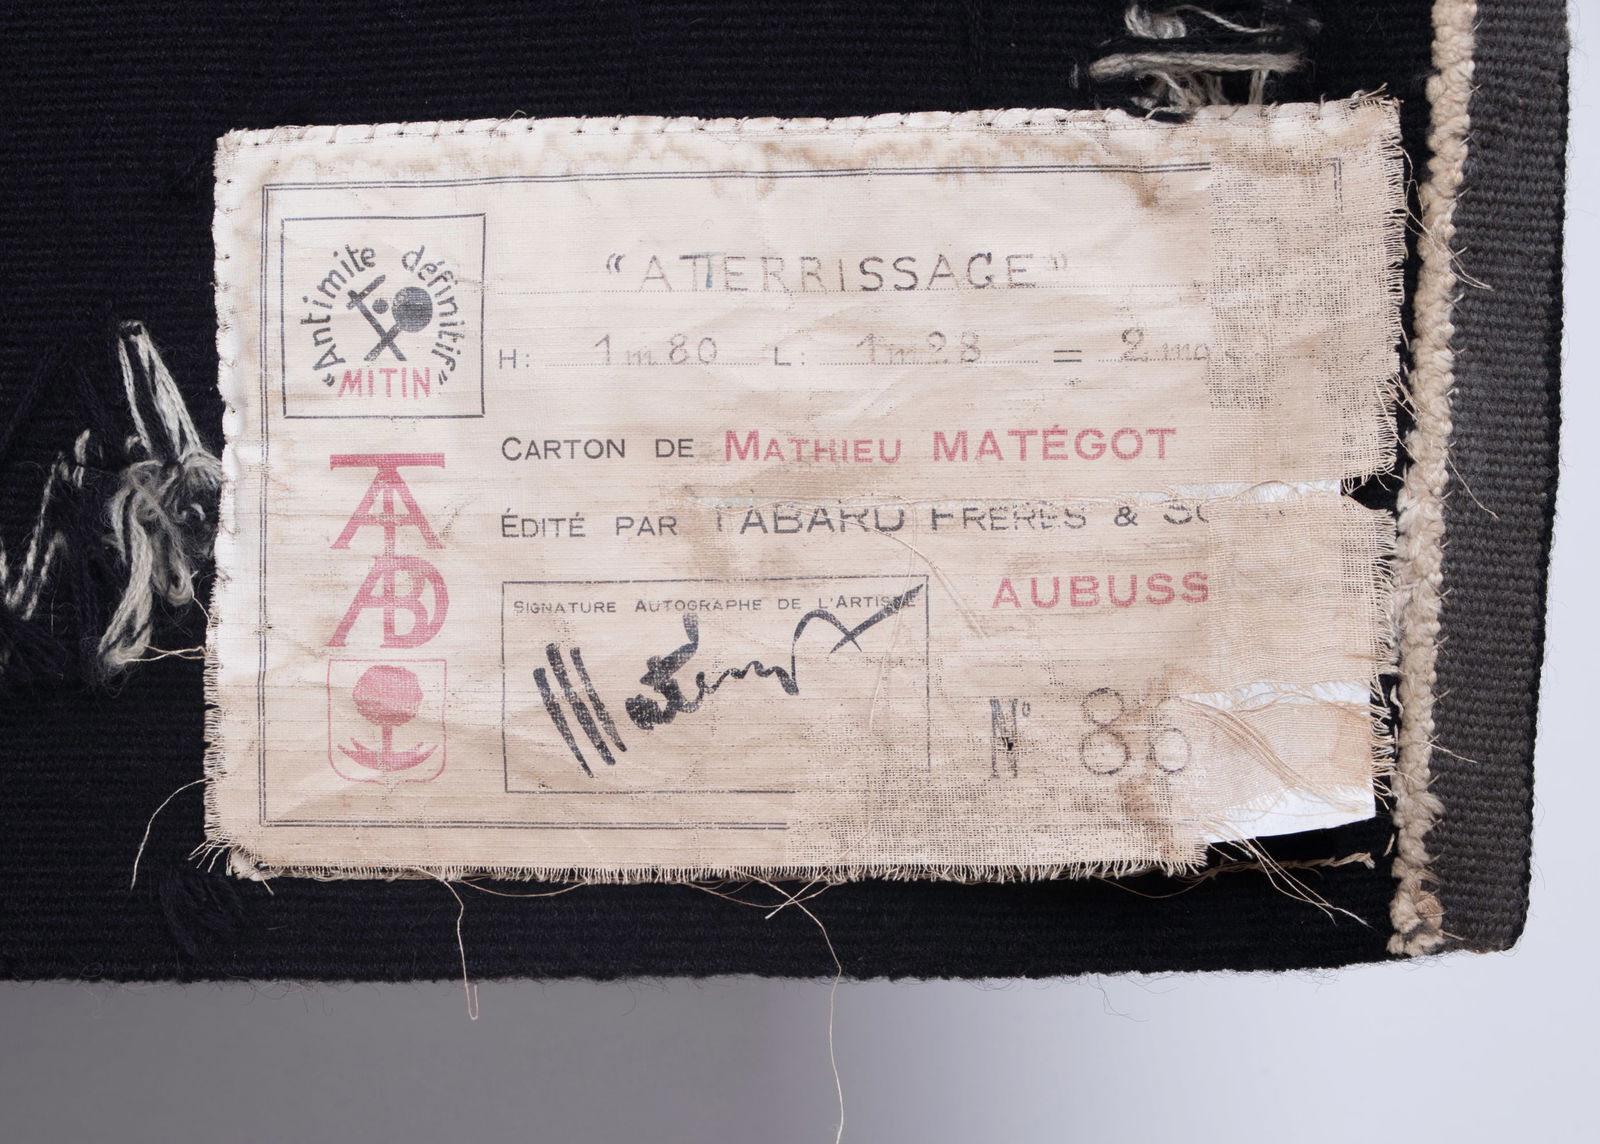 "Antimite définitif"
MITIN
"ATTERRISSAGE"
H: 1m80 L: 1m28 = 2
CARTON DE MATHIEU MATÉGOT
ÉDITÉ PAR TABARD FRÈRES &
AUBUSS
TABARD
SIGNATURE AUTOGRAPHE DE L'ARTISTE
Matégot
N° 86